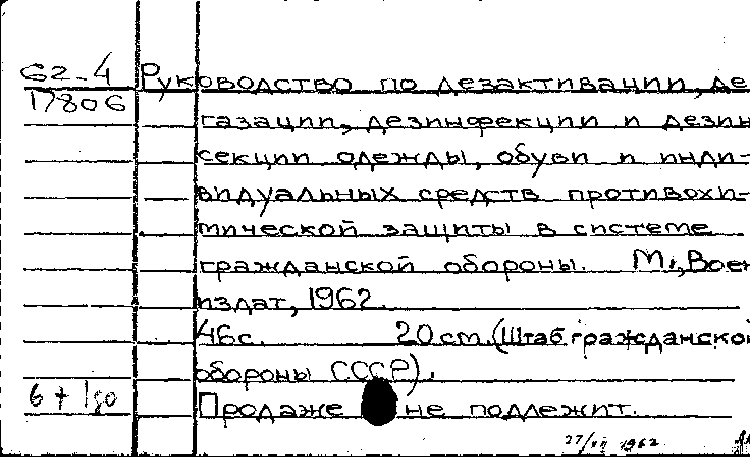 62-4 Руководство по дезактивации, де
17806
газации, дезинфекции и дезин
секции одежды, обуви и инди-
видуальных средств противохи-
мической защиты в системе
гражданской обороны. М., Воен
издат, 1962.
46с. 20 cm. (Штаб гражданской
обороны СССР).
6 +
Продаже не подлежит.
27/VII 1962